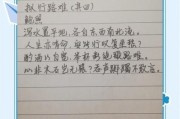 拟行路难（其四）
鲍照
泻水置平地，各自东西南北流。
人生亦有命，安能行叹复坐愁？
酌酒以自宽，举杯断绝歌路难。
心非木石岂无感？吞声踯躅不敢言。